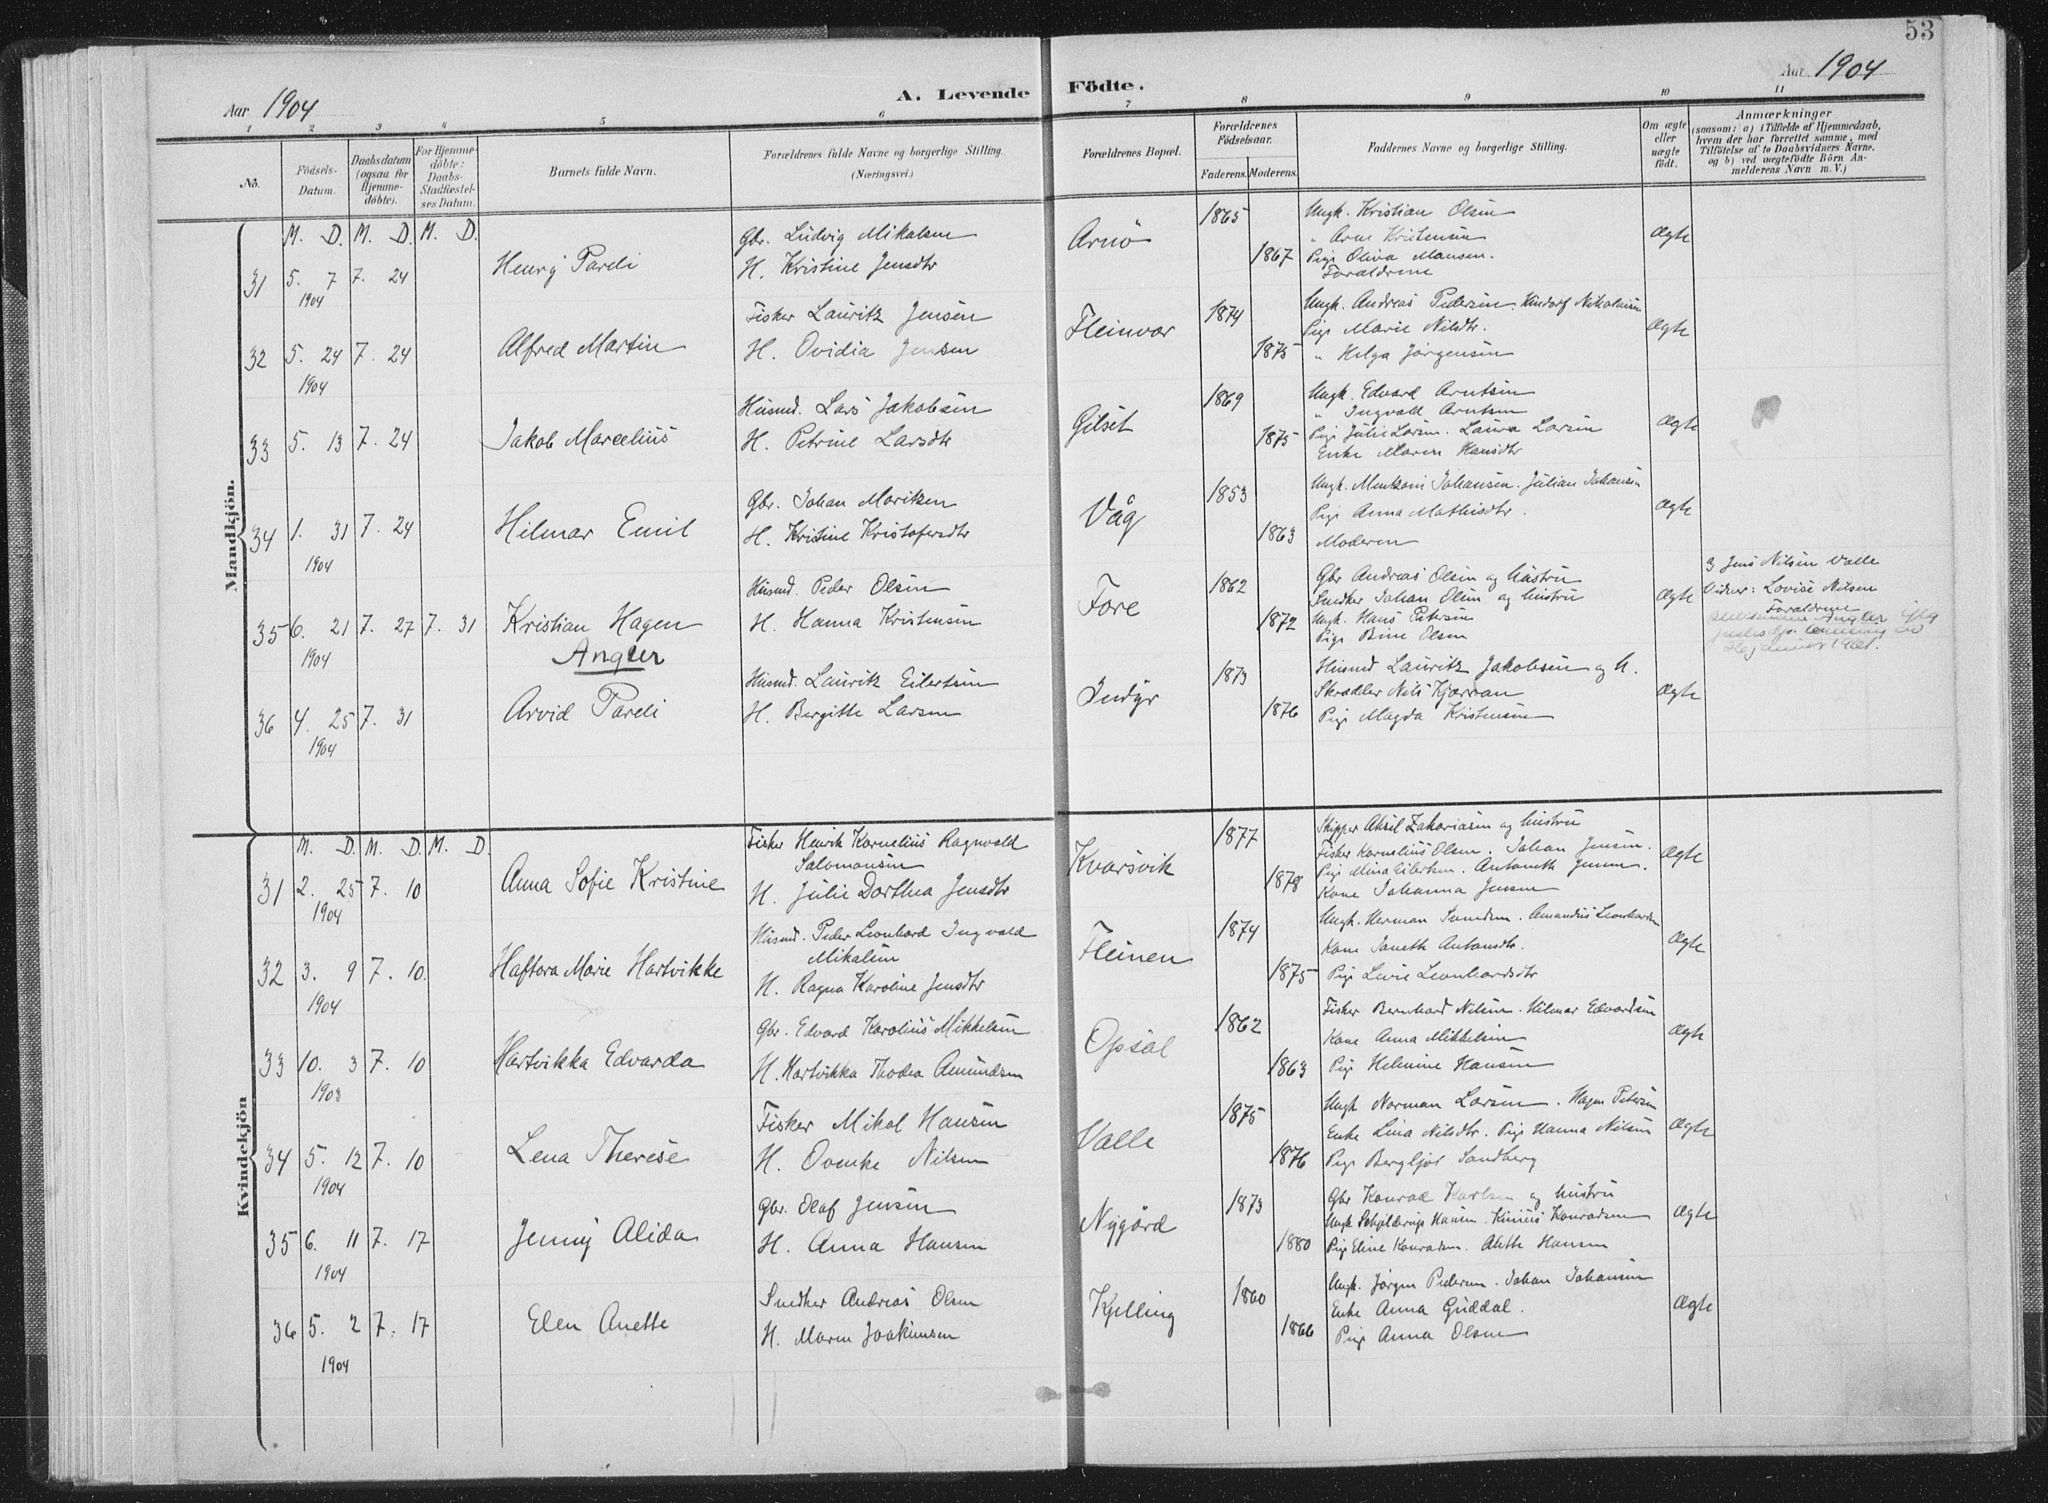 53
Aar 1904
A. Levende Födte.
Aar 1904
1 2 3 4 5 6 7 8 9 10 11
No.
Födsels-Datum.
Daabsdatum (ogsaa for Hjemme-döbte).
For Hjemme-döbte: Daabs-Stadfæstel-ses Datum.
Barnets fulde Navn.
Forældrenes fulde Navne og borgerlige Stilling.
(Næringsvei.)
Forældrenes Bopæl.
Forældrenes Födselsaar.
Faderens. Moderens.
Faddernes Navne og borgerlige Stilling.
Om ægte eller uægte födt.
Anmærkninger
(saasom: a) i Tilfælde af Hjemmedaab, hvem der har forrettet samme, med Tilföielse af to Daabsvidners Navne, og b) ved uægtefödte Börn An-melderens Navn m. V.)
Mandkjön.
M. D. M. D. M. D.
31 5. 7 1904 7. 24 Henry Pareli
Gbr. Ludvig Mikalsen
H. Kristine Jensdtr
Arnö 1865 1867
Ungk. Kristian Olsen
" Arne Kristensen
Pige Oliva Monsen.
Forældrene
Ægte
32 5. 24 1904 7. 24 Alfred Martin
Fisker Lauritz Jensen
H. Ovidia Jensen
Fleinvær 1874 1875
Ungk. Andreas Pedersen. Nikolaisen
Pige Marie Nilsdtr.
" Helga Jörgensen
Ægte
33 5. 13 7. 24 Jakob Marcelius
Husmd. Lars Jakobsen
H. Petrine Larsdtr
Gilset 1869 1875
Ungk. Edvard Arntsen
" Ingvald Arntsen
Pige Julie Larsen. Laura Larsen
Enke Maren Hansdtr
Ægte
34 1. 31 1904 7. 24 Hilmar Emil
Gbr. Johan Moritsen
H. Kristine Kristofersdtr
Våg 1853 1863
Ungk. Mentzoni Johansen. Julian Johansen
Pige Anna Mathisdtr.
Moderen
Ægte
35 6. 21 1904 7. 27 7. 31 Kristian Hagen
Angler
Husmd. Peder Olsen
H. Hanna Kristensen
Fore 1862 1872
Gbr Andreas Olsen og hustru
Snedker Johan Olsen og hustru
Ungk. Hans Petersen
Pige Bine Olsen
Ægte
Jens Nilsen Valle
Vidner: Lovise Nilsen
Forældrene
36 4. 25 1904 7. 31 Arvid Pareli
Husmd. Lauritz Eilertsen
H. Bergitte Larsen
Indyr 1873 1876
Husmd Lauritz Jakobsen og H.
Skrædder Nils Kjærran
Pige Magda Kristensen
Ægte
Kvindekjön
M. D. M. D. M. D.
31 2. 25 1904 7. 10 Anna Sofie Kristine
Fisker Henrik Kornelius Ragnvald
Salomonsen
H. Julie Dorthea Jensdtr
Kvarsvik 1877 1878
Skipper Aksel Zakariasen og hustru
Fisker Kornelius Olsen. Johan Jensen.
Pige Mina Eilertsen. Antoneth Jensen.
Kone Johanna Jensen
Ægte
32 3. 9 1904 7. 10. Haftora Marie Hartvikke
Husmd. Peder Leonhard Ingvald
Mikalsen
H. Ragna Karoline Jensdtr
Fleinen 1874 1875
Ungk. Herman Svendsen. Amandus Leonhardsen
Kone Janeth Antonsdtr.
Pige Levie Leonhardsdtr
Ægte
33 10. 3 1903 7. 10 Hartvikka Edvarda
Gbr. Edvard Karolius Mikkelsen
H. Hartvikka Thodea Amundsen
Opsal 1862 1863
Fisker Bernhard Nilsen. Hilmar Edvardsen
Kone Anna Mikkelsen
Pige Helmine Hansen
Ægte
34 5. 12 1904 7. 10 Lena Therese
Fisker Mikal Hansen
H. Ovenke Nilsen
Valle 1875 1876
Ungk Norman Larsen. Hagen Petersen
Enke Lina Nilsdtr. Pige Hanna Nilsen
Pige Bergljot Sandberg
Ægte
35 6. 11 1904 7. 17 Jenny Alida
Gbr. Olaf Jensen
H. Anna Hansen
Nygård 1873 1880
Gbr Konrad Karlsen og hustru
Ungk Schjelderup Hansen. Konradsen
Pige Eline Konradsen. Alette Hansen
Ægte
36 5. 2 1904 7. 17 Elen Anette
Snedker Andreas Olsen
H. Maren Joakimsen
Kjelling 1860 1866
Ungk. Jörgen Pedersen. Johan Johansen
Enke Anna Guddal.
Pige Anna Olsen
Ægte